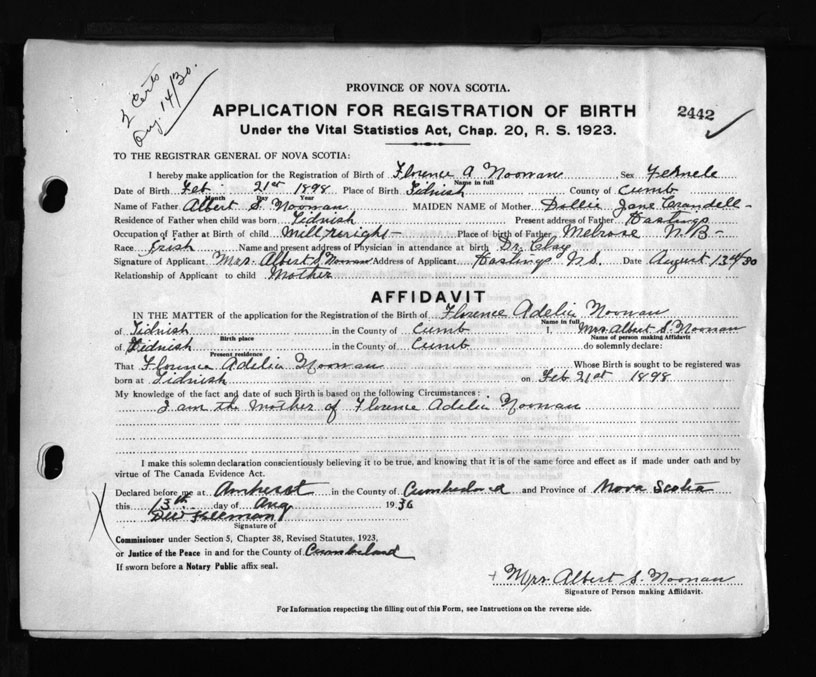 2 Certs
Aug 14/30.
PROVINCE OF NOVA SCOTIA.
APPLICATION FOR REGISTRATION OF BIRTH
2442
Under the Vital Statistics Act, Chap. 20, R. S. 1923.
TO THE REGISTRAR GENERAL OF NOVA SCOTIA:
I hereby make application for the Registration of Birth of Florence A Noonan Sex Female
Name in full
Date of Birth Feb 21st 1898 Place of Birth Tidnish County of Cumb
Month Day Year
Name of Father Albert S. Noonan MAIDEN NAME of Mother Dollie Jane Crandell
Residence of Father when child was born Tidnish Present address of Father Hastings
Occupation of Father at Birth of child Millwright Place of birth of Father Melrose N.B
Race Irish Name and present address of Physician in attendance at birth Dr. Clay
Signature of Applicant Mrs. Albert S Noonan Address of Applicant Hastings N.S. Date August 13th/30
Relationship of Applicant to child Mother
AFFIDAVIT
IN THE MATTER of the application for the Registration of the Birth of Florence Adelia Noonan
Name in full
of Tidnish in the County of Cumb I, Mrs. Albert S. Noonan
Birth place Name of person making Affidavit
of Tidnish in the County of Cumb do solemnly declare:
Present residence
That Florence Adelia Noonan Whose Birth is sought to be registered was
born at Tidnish on Feb 21st 1898
My knowledge of the fact and date of such Birth is based on the following Circumstances :
I am the Mother of Florence Adelia Noonan
I make this solemn declaration conscientiously believing it to be true, and knowing that it is of the same force and effect as if made under oath and by
virtue of The Canada Evidence Act.
Declared before me at Amherst in the County of Cumberland and Province of Nova Scotia
this 13th day of Aug 1930
Signature of
Commissioner under Section 5, Chapter 38, Revised Statutes, 1923,
or Justice of the Peace in and for the County of Cumberland
If sworn before a Notary Public affix seal.
Mrs. Albert S. Noonan
Signature of Person making Affidavit.
For Information respecting the filling out of this Form, see Instructions on the reverse side.